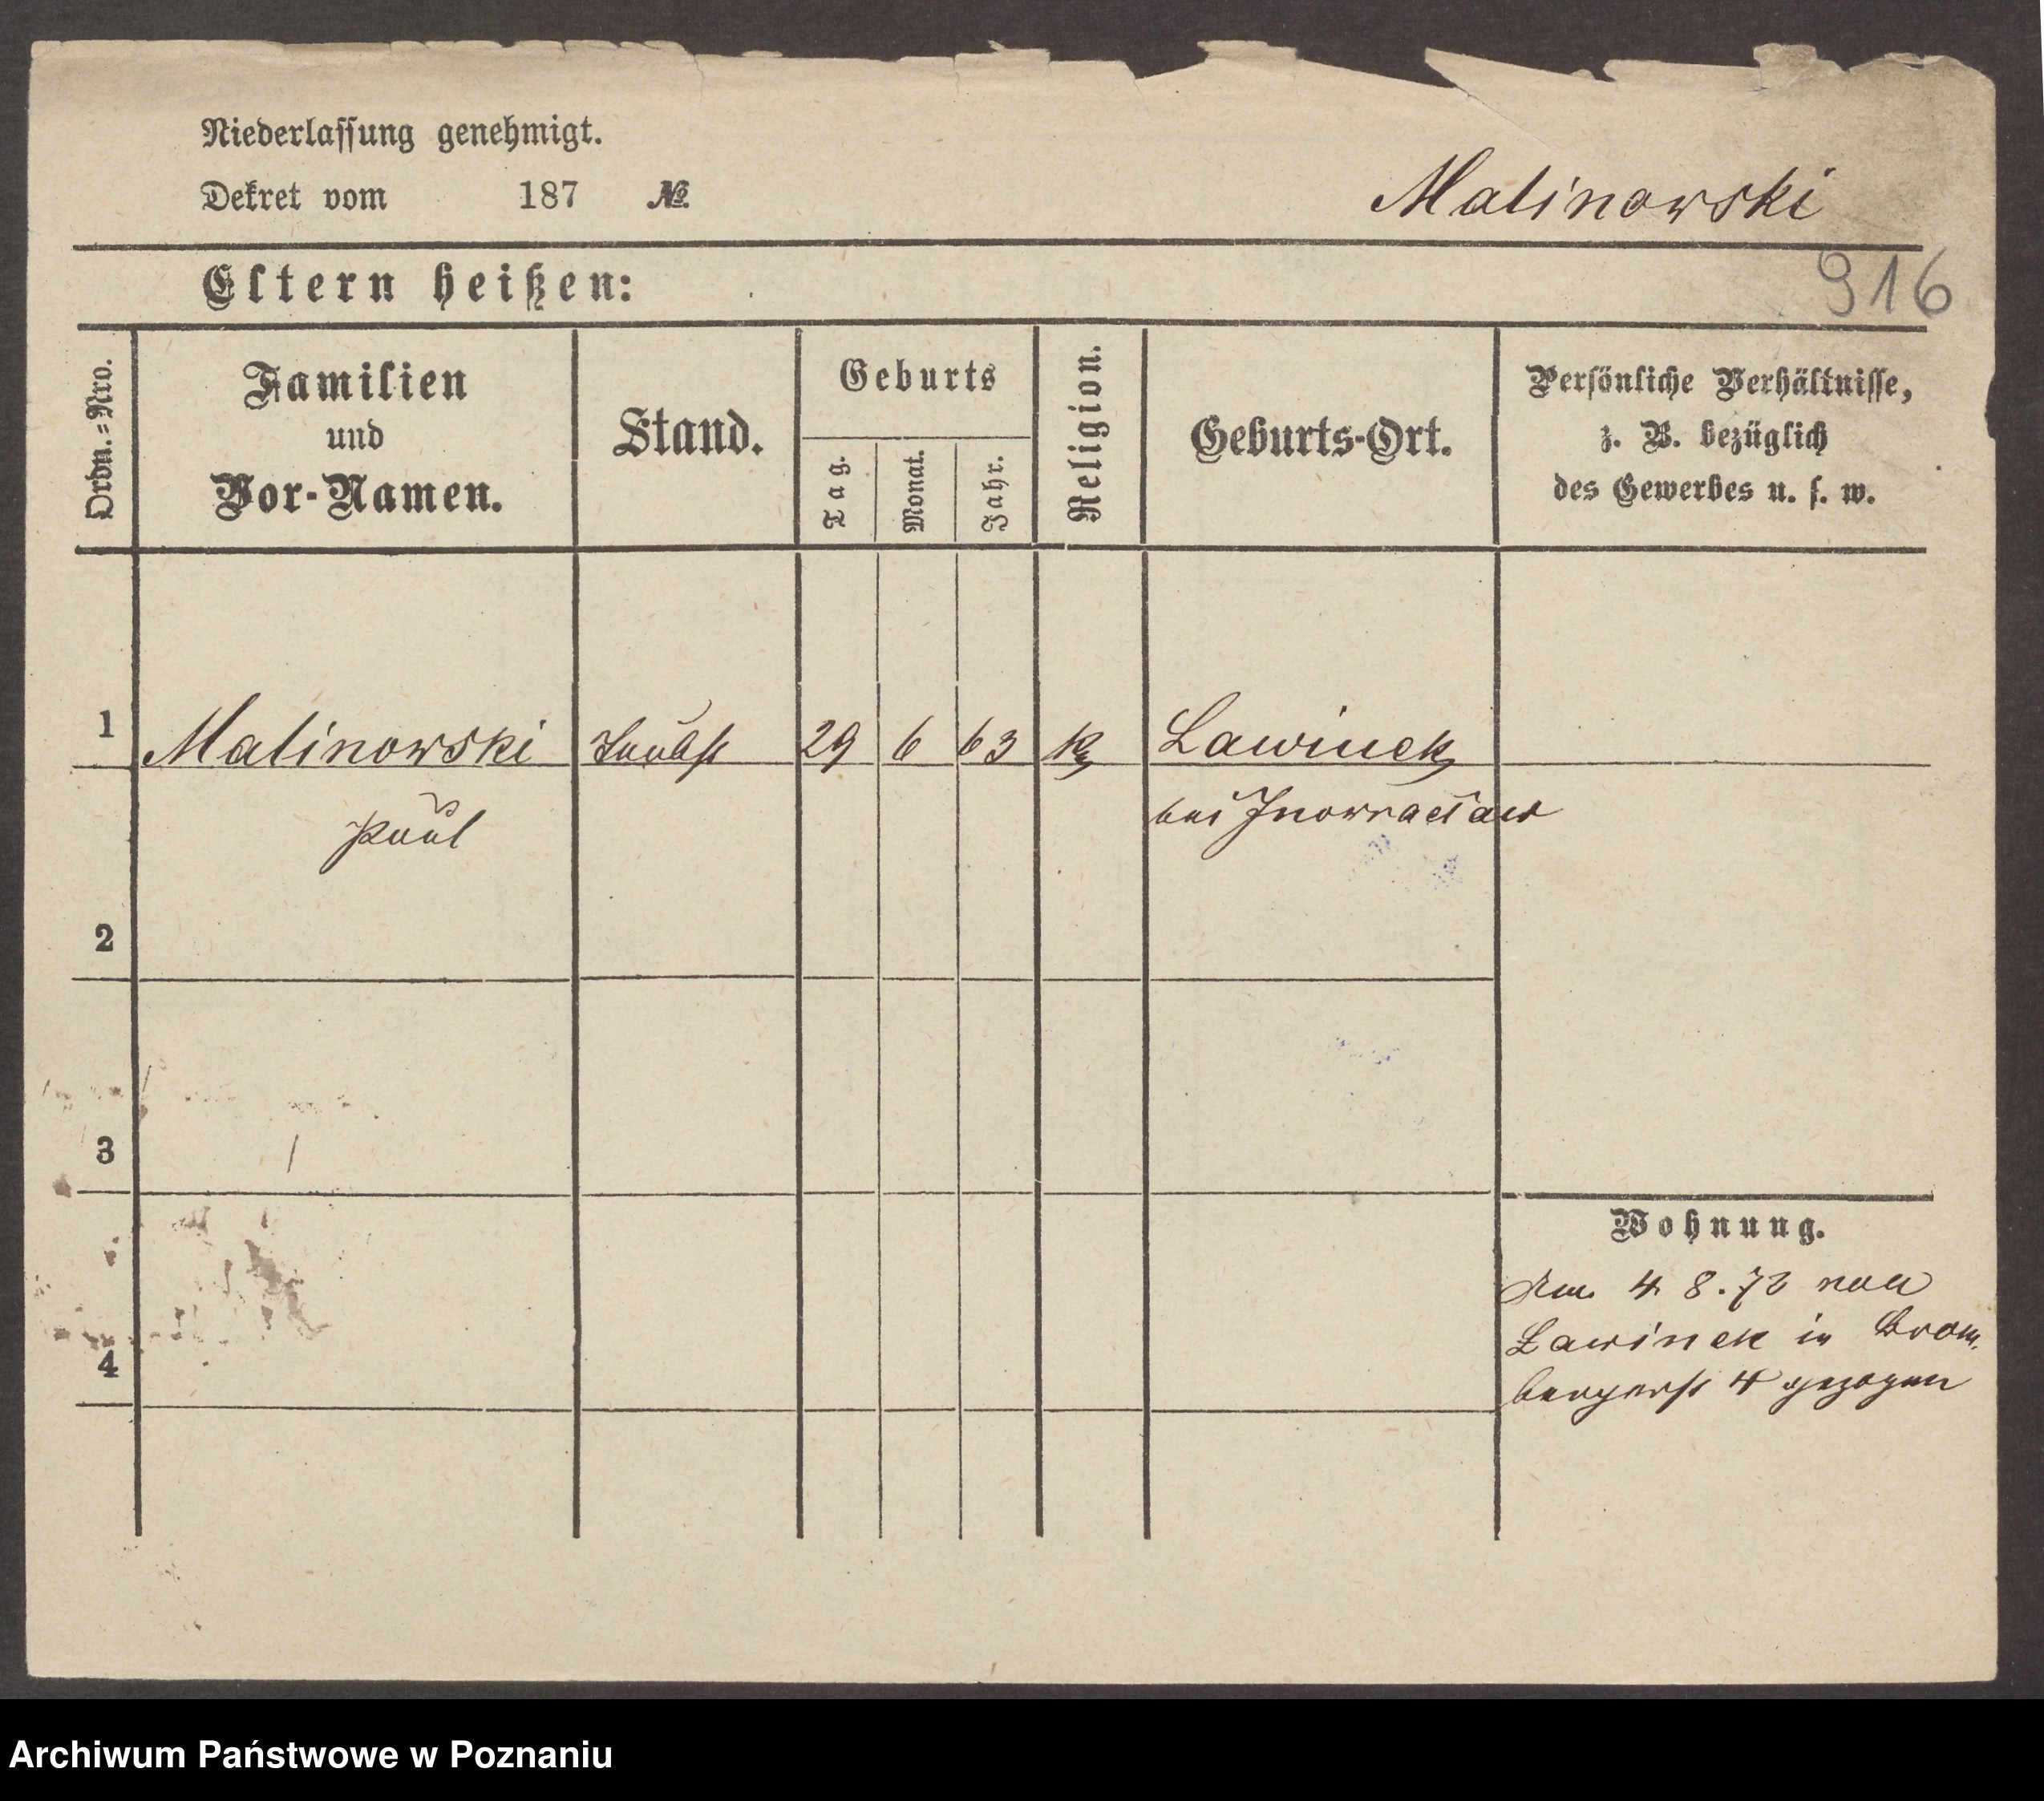 Niederlassung genehmigt.
Dekret vom 187 №
Malinowski
Eltern heißen:
916
Ordn.=Nro.
Familien
und
Vor-Namen.
Stand.
Geburts
Tag.
Monat.
Jahr.
Religion.
Geburts-Ort.
Persönliche Verhältnisse,
z. B. bezüglich
des Gewerbes u. s. w.
1 Malinowski 29 6 63 K Lawinek
Paul bei Inowraclaw
2
3
4
Wohnung.
Am 4 8. 72 von
Lawinek in Brom,
bergerst 4 gezogen
Archiwum Państwowe w Poznaniu